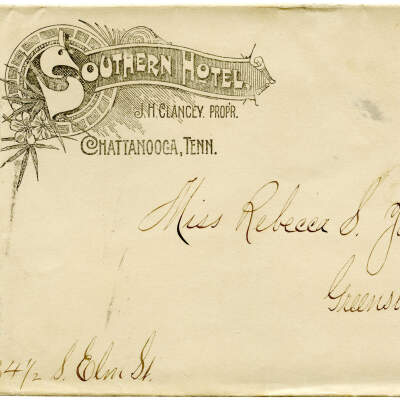 SOUTHERN HOTEL
J.H. CLANCEY. PROP'R.
CHATTANOOGA, TENN.
Miss Rebecca S.
Greens
4 1/2 S. Elm St.